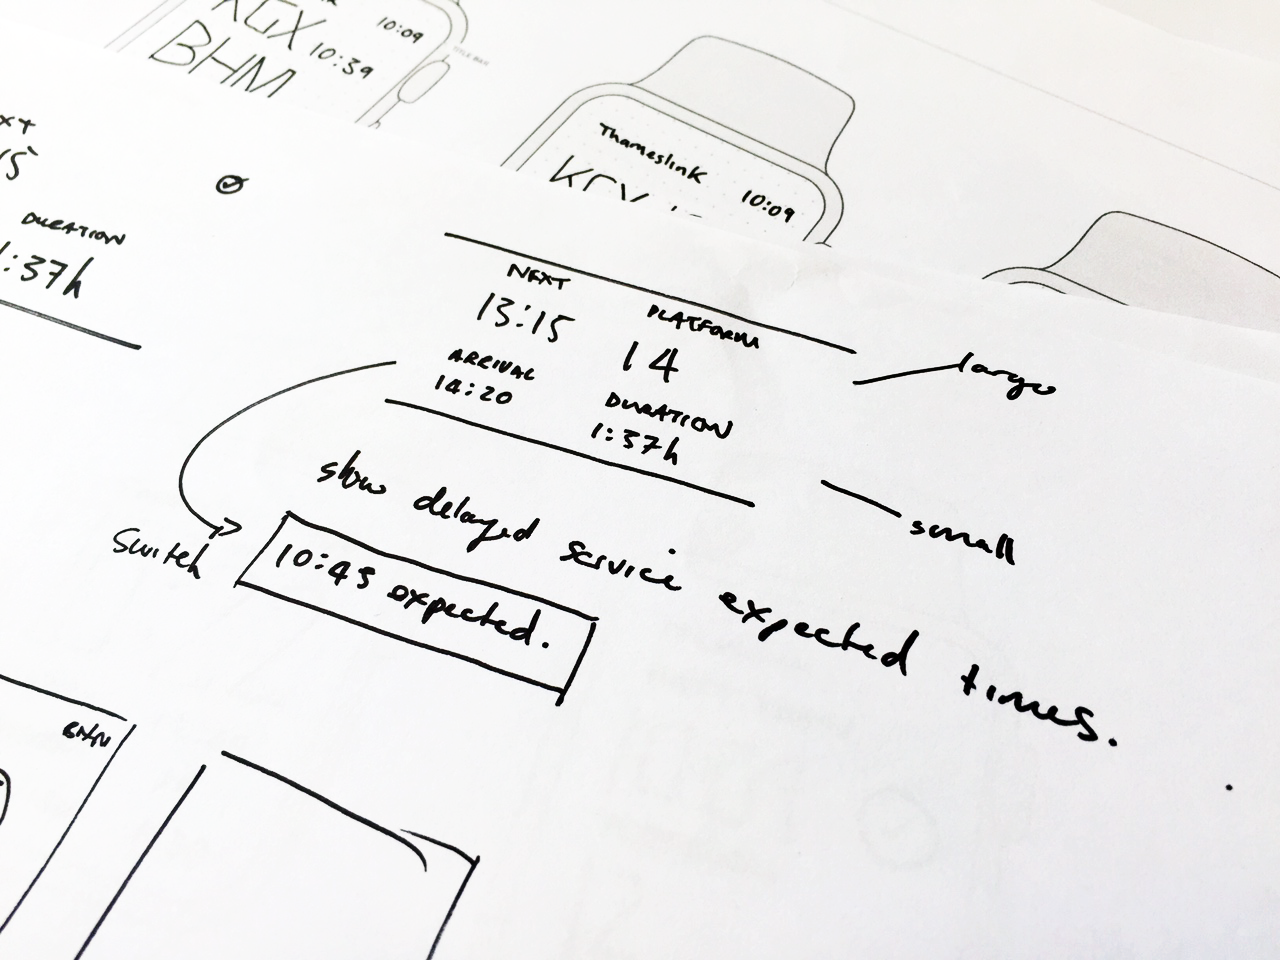 KGX 10:09
10:39
BHM
TITLE BAR
Thameslink
10:09
15
DURATION
1:37h
NEXT
13:15
PLATFORM
14
ARRIVAL
14:20
DURATION
1:37h
large
small
show delayed service expected times.
Switch
10:45 expected.